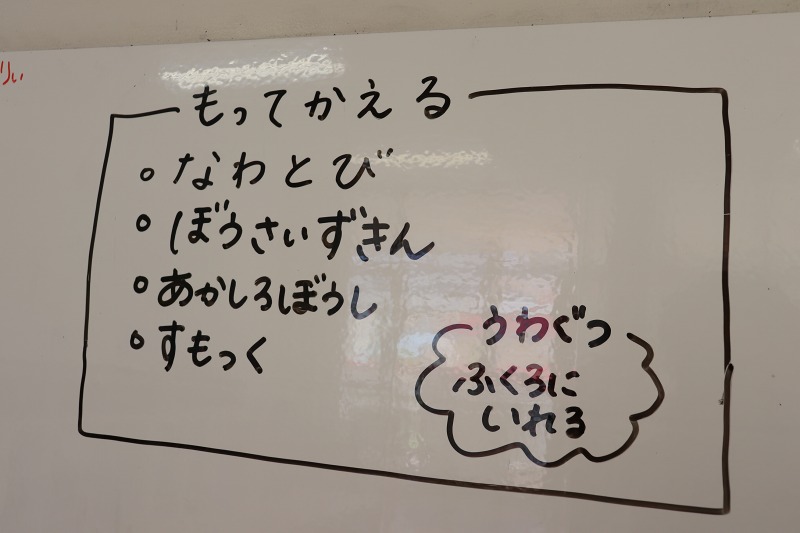 もってかえる
。なわとび
。ぼうさいずきん
。あかしろぼうし
。すもっく
うわぐつ
ふくろに
いれる